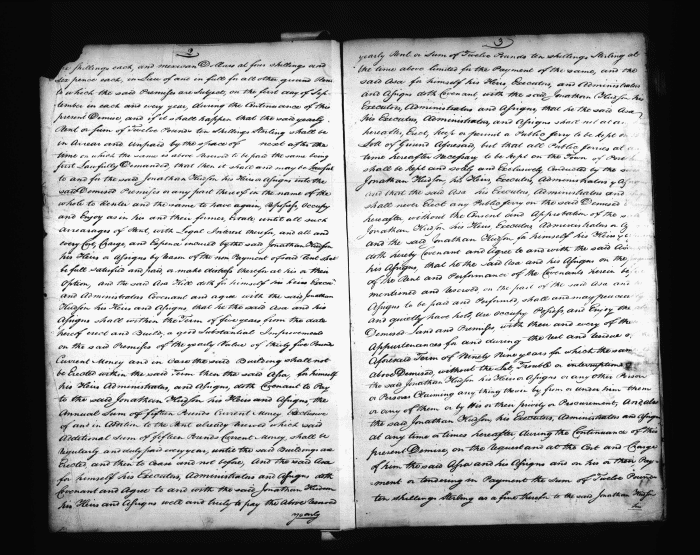 2
six shillings each, and mexican Dollars at four shillings and
six pence each, in Lieu of and in full for all other ground Rent
to which the said Premises are Subject, on the first day of Sep-
tember in each and every year, during the Continuance of this
present Demise, and if it shall happen that the said yearly
Rent or sum of Twelve Pounds ten shillings Sterling shall be
in Arrear and Unpaid by the space of next after the
time on which the same is above reserved to be paid the same being
first Lawfully Demanded, that then it shall and may be Lawful
to and for the said Jonathan Hudson his Heirs Assigns into the
said Demised Premises or any part thereof in the name of the
whole to Reenter and the same to have again, Repossess, Occupy
and Enjoy as in his and their former Estate until all such
Arrearages of Rent, with Legal Interest thereon, and all and
every Cost, Charge, and Expence incured by the said Jonathan Hudson
his Heirs or Assigns by reason of the non Payment of said Rent shall
be full satisfied and paid, or make distress therefor at his or their
Option, and the said Asa Hill doth for himself his heirs Execut
and Administrators Covenant and agree with the said Jonathan
Hudson his Heirs and Assigns that he the said Asa and his
Assigns shall within the Term of five years from the date
hereof erect and Build, a good Substantial Improvement
on the said Premises of the yearly Value of thirty five Pounds
Current Money and in Case the said Building shall not
be Erected within the said Term then the said Asa, for himself
his Heirs Administrators, and Assigns, doth Covenant to Pay
to the said Jonathan Hudson his Heirs and Assigns, the
Annual Sum of fifteen Pounds Current Money Exclusive
of and in Addition to the Rent already reserved which said
Additional Sum of fifteen Pounds Current Money, shall be
regularly and duly paid every year, until the said Buildings are
Erected, and then to Cease and not before, And the said Asa
for himself his Executors, Administrators and Assigns doth
Covenant and Agree to and with the said Jonathan Hudson
his Heirs and Assigns well and truly to pay the Above Reserved
yearly
3
yearly Rent or Sum of Twelve Pounds ten shillings Sterling at
the times above limited for the Payment of the same, and the
said Asa for himself his Heirs Executors, and Administrators
and Assigns doth Covenant with the said Jonathan Hudson his
Executors, Administrators and Assigns that he the said Asa
his Executors, Administrators, and Assigns shall not at a
hereafter, Erect, Keep or permit a Public ferry to be kept on
Lott of Ground Aforesaid, but that all Public ferries at a
time hereafter necessary to be kept on the Town of Port
shall be kept and solely and Exclusively Conducted by the said
Jonathan Hudson his Heirs, Executors, Administrators & Assigns
and that the said Asa his Executors, Administrators and
shall never Erect any Public ferry on the said Demised
hereafter without the Consent and Approbation of the s
Jonathan Hudson his Heirs, Executors Administrators or
and the said Jonathan Hudson for himself and his Heirs
doth hereby Covenant and Agree to and with the said Asa
his Assigns, that he the said Asa and his Assigns on the
of the Rent and Performance of the Covenants herein be
mentioned and reserved on the part of the said Asa and
Assigns to be paid and Performed, shall and may peaceably
and quietly have hold, Use occupy Possess, and Enjoy the
Demised Land and Premises with them and every of the
Appurtenances for and during the rest and residue of
Aforesaid Term of Ninety Nine years for which the same
above Demised, without the Let, Trouble or interruption of
the said Jonathan Hudson his Heirs or Assigns or any other Person
or Persons Claiming any thing thereto by from or under him them
or any of them or by His or their privity or Procurement, And also
the said Jonathan Hudson his Executors, Administrators and Assigns
at any time or times hereafter, during the Continuance of this
present Demise, on the request and at the Cost and Charge
of him the said Asa and his Assigns and on his or their Pay-
ment or tendering in Payment the Sum of Twelve Pounds
ten shillings Sterling as a fine therefor to the said Jonathan Hudson